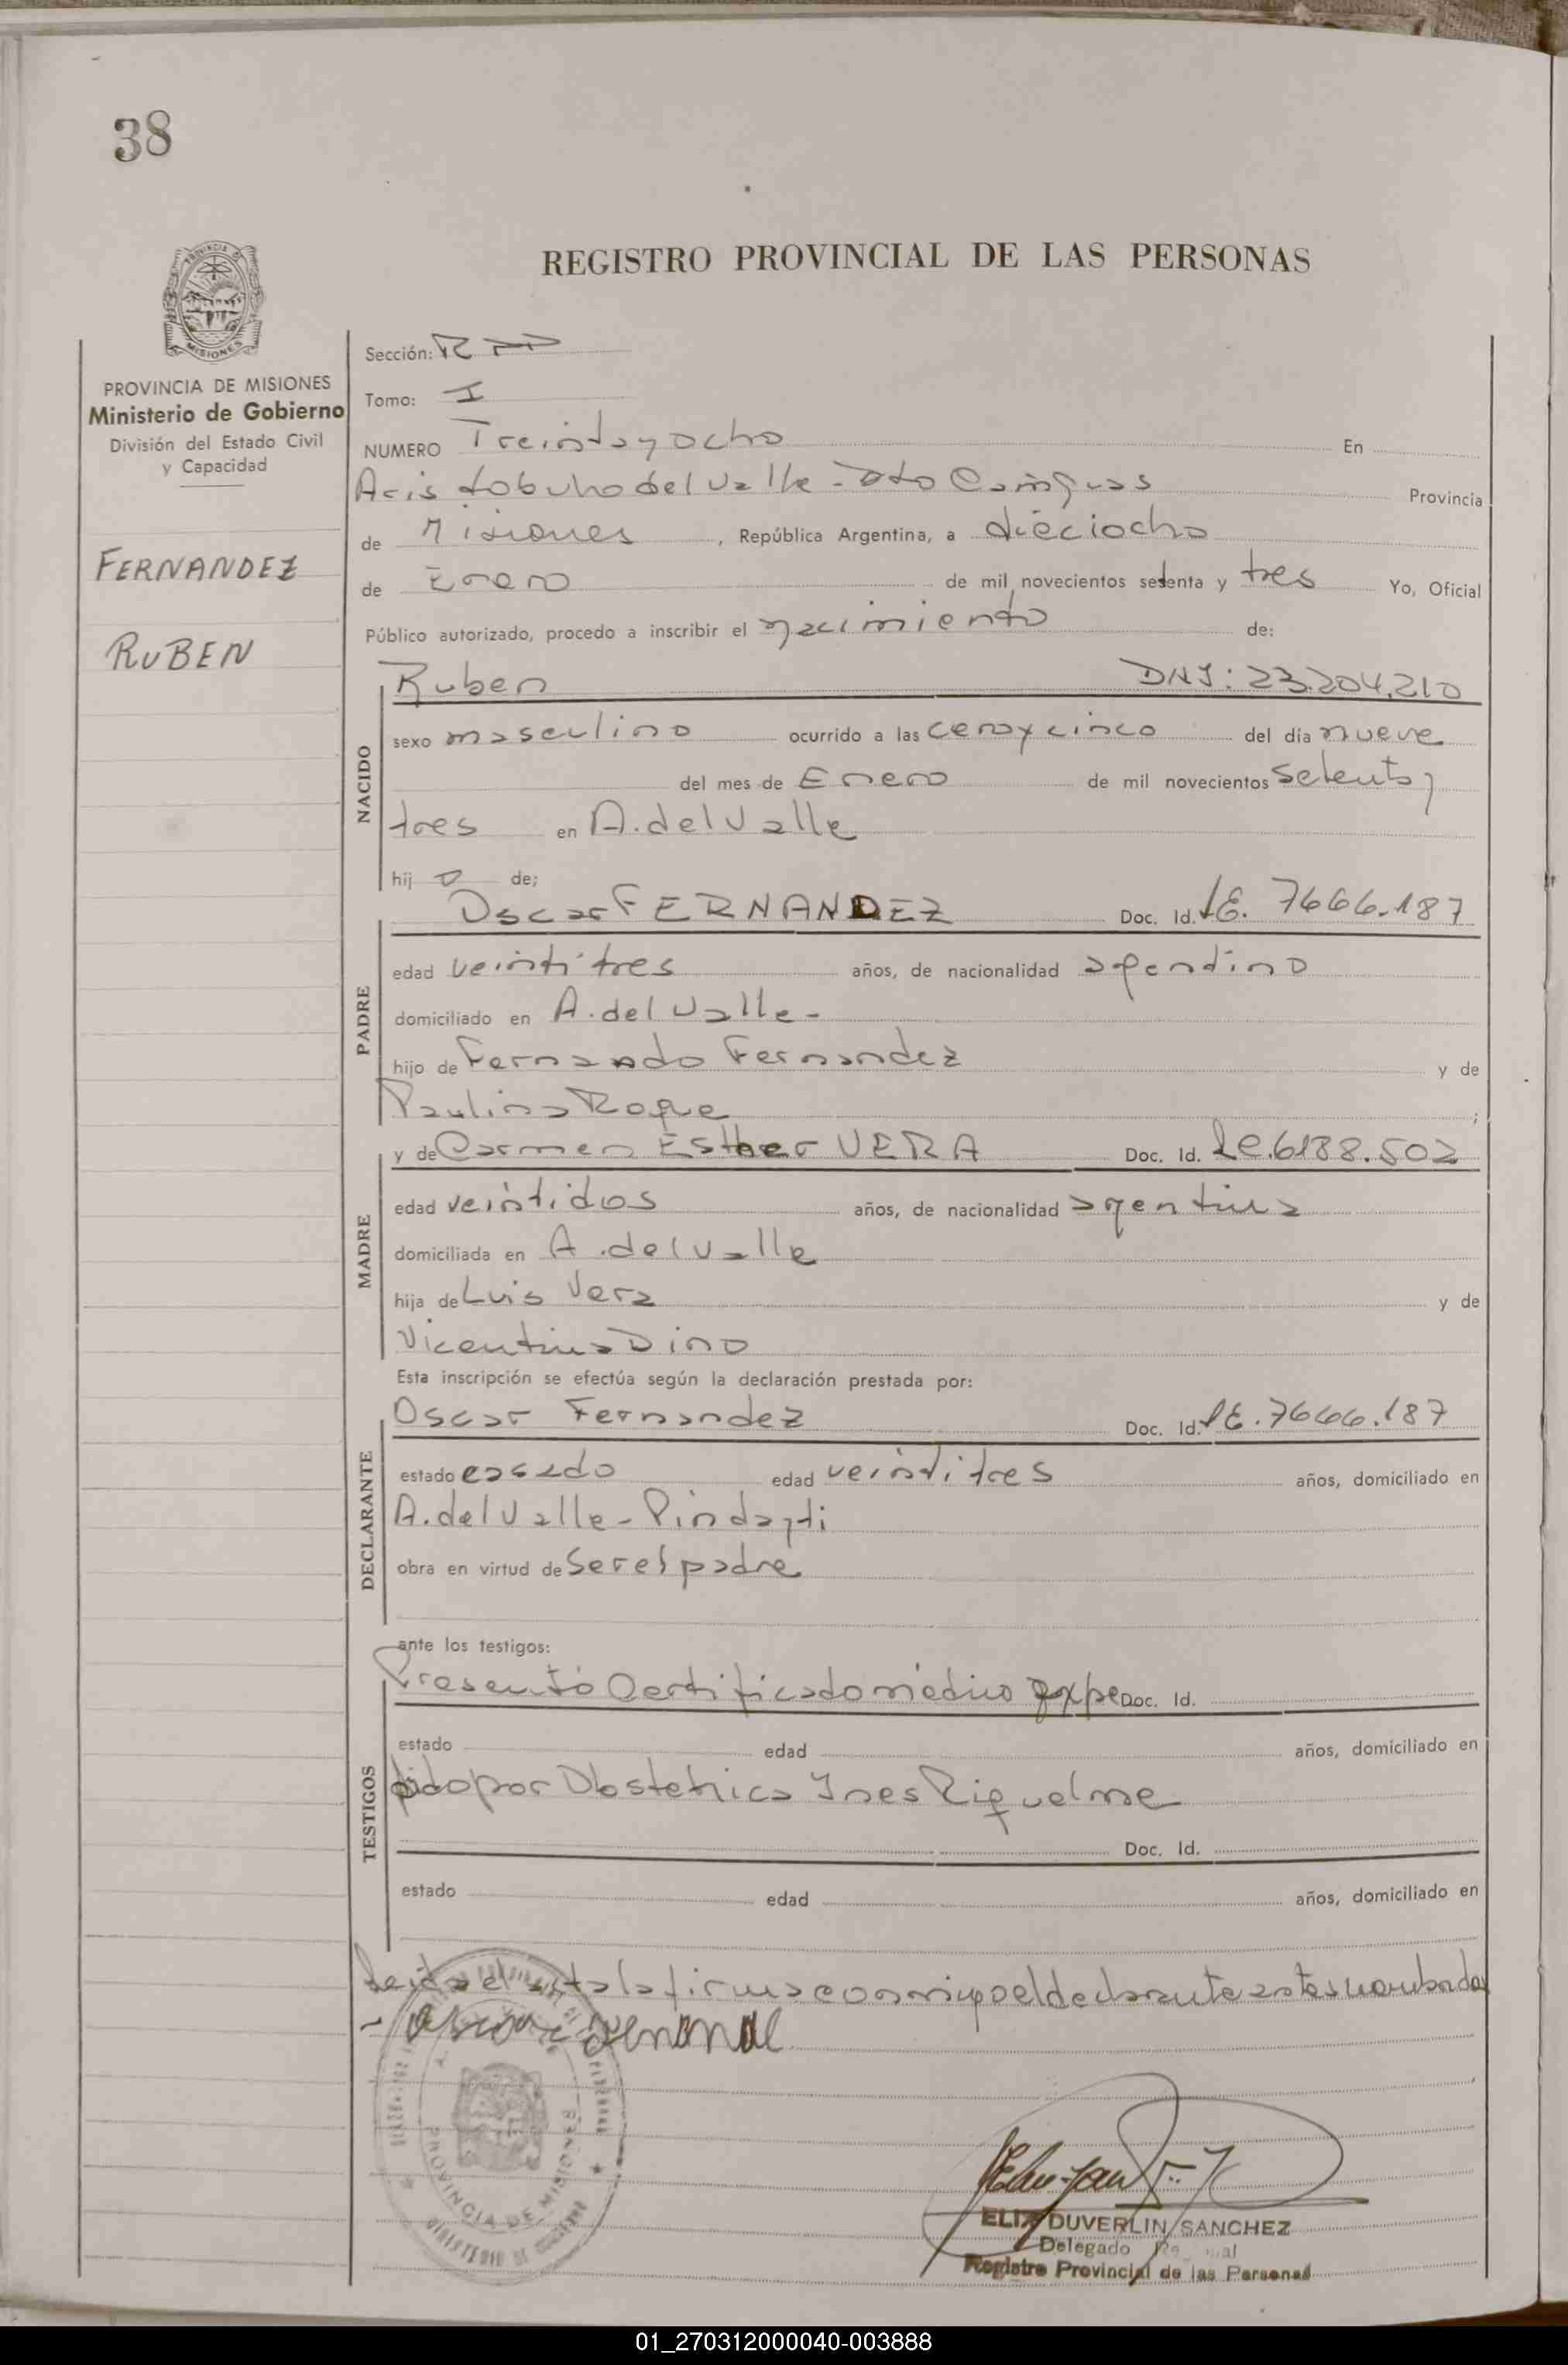 38
REGISTRO PROVINCIAL DE LAS PERSONAS
PROVINCIA DE MISIONES
Ministerio de Gobierno
División del Estado Civil
y Capacidad
FERNANDEZ
RUBEN
Sección:
Tomo: I
NUMERO Treinta y ocho En
Aristobulo del Valle - Dto Cainguas Provincia
de Misiones, República Argentina, a dieciocho
de Enero de mil novecientos setenta y tres Yo, Oficial
Público autorizado, procedo a inscribir el nacimiento de:
NACIDO
Ruben DNI: 23.204.210
sexo masculino ocurrido a las cero y cinco del día nueve
del mes de Enero de mil novecientos setenta y
tres en A. del Valle
hijo de;
PADRE
Oscar FERNANDEZ Doc. Id. LE. 7666.187
edad veintitres años, de nacionalidad argentino
domiciliado en A. del Valle -
hijo de Fernando Fernandez y de
Paulina Roque;
MADRE
y de Carmen Esther VERA Doc. Id. LC. 6188.502
edad veintidos años, de nacionalidad argentina
domiciliada en A. del Valle
hija de Luis Vera y de
Vicentina Dino
Esta inscripción se efectúa según la declaración prestada por:
DECLARANTE
Oscar Fernandez Doc. Id. LE. 7666.187
estado casado edad veintitres años, domiciliado en
A. del Valle - Pindayti
obra en virtud de ser el padre
ante los testigos:
TESTIGOS
Presentó Certificado médico expe Doc. Id.
estado edad años, domiciliado en
dido por Obstetrica Ines Riquelme
Doc. Id.
estado edad años, domiciliado en
Leida el acta la firma conmigo el declarante antes nombrado
PROVINCIA DE MISIONES
MINISTERIO DE GOBIERNO
ELIZ DUVERLIN SANCHEZ
Delegado
Registro Provincial de las Personas
01_270312000040-003888